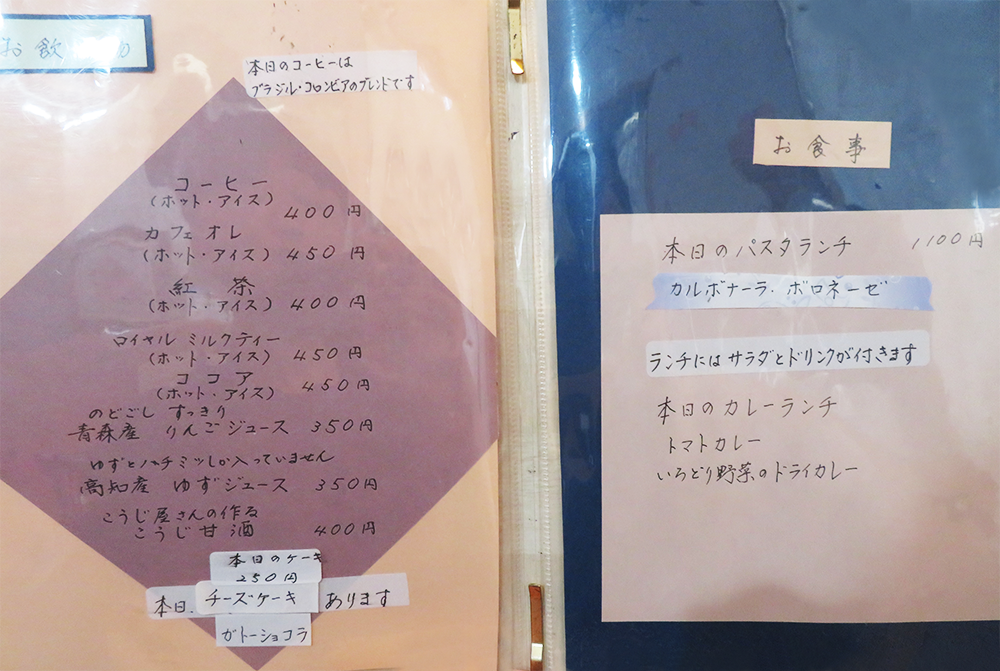 お飲物
本日のコーヒーは
ブラジル・コロンビアのブレンドです
コーヒー
(ホット・アイス) 400円
カフェオレ
(ホット・アイス) 450円
紅茶
(ホット・アイス) 400円
ロイヤルミルクティー
(ホット・アイス) 450円
ココア
(ホット・アイス) 450円
のどごし すっきり
青森産 りんごジュース 350円
ゆずとハチミツしか入っていません
高知産 ゆずジュース 350円
こうじ屋さんの作る
こうじ甘酒 400円
本日のケーキ
250円
本日、チーズケーキ あります
ガトーショコラ
お食事
本日のパスタランチ 1100円
カルボナーラ・ボロネーゼ
ランチにはサラダとドリンクが付きます
本日のカレーランチ
トマトカレー
いろどり野菜のドライカレー